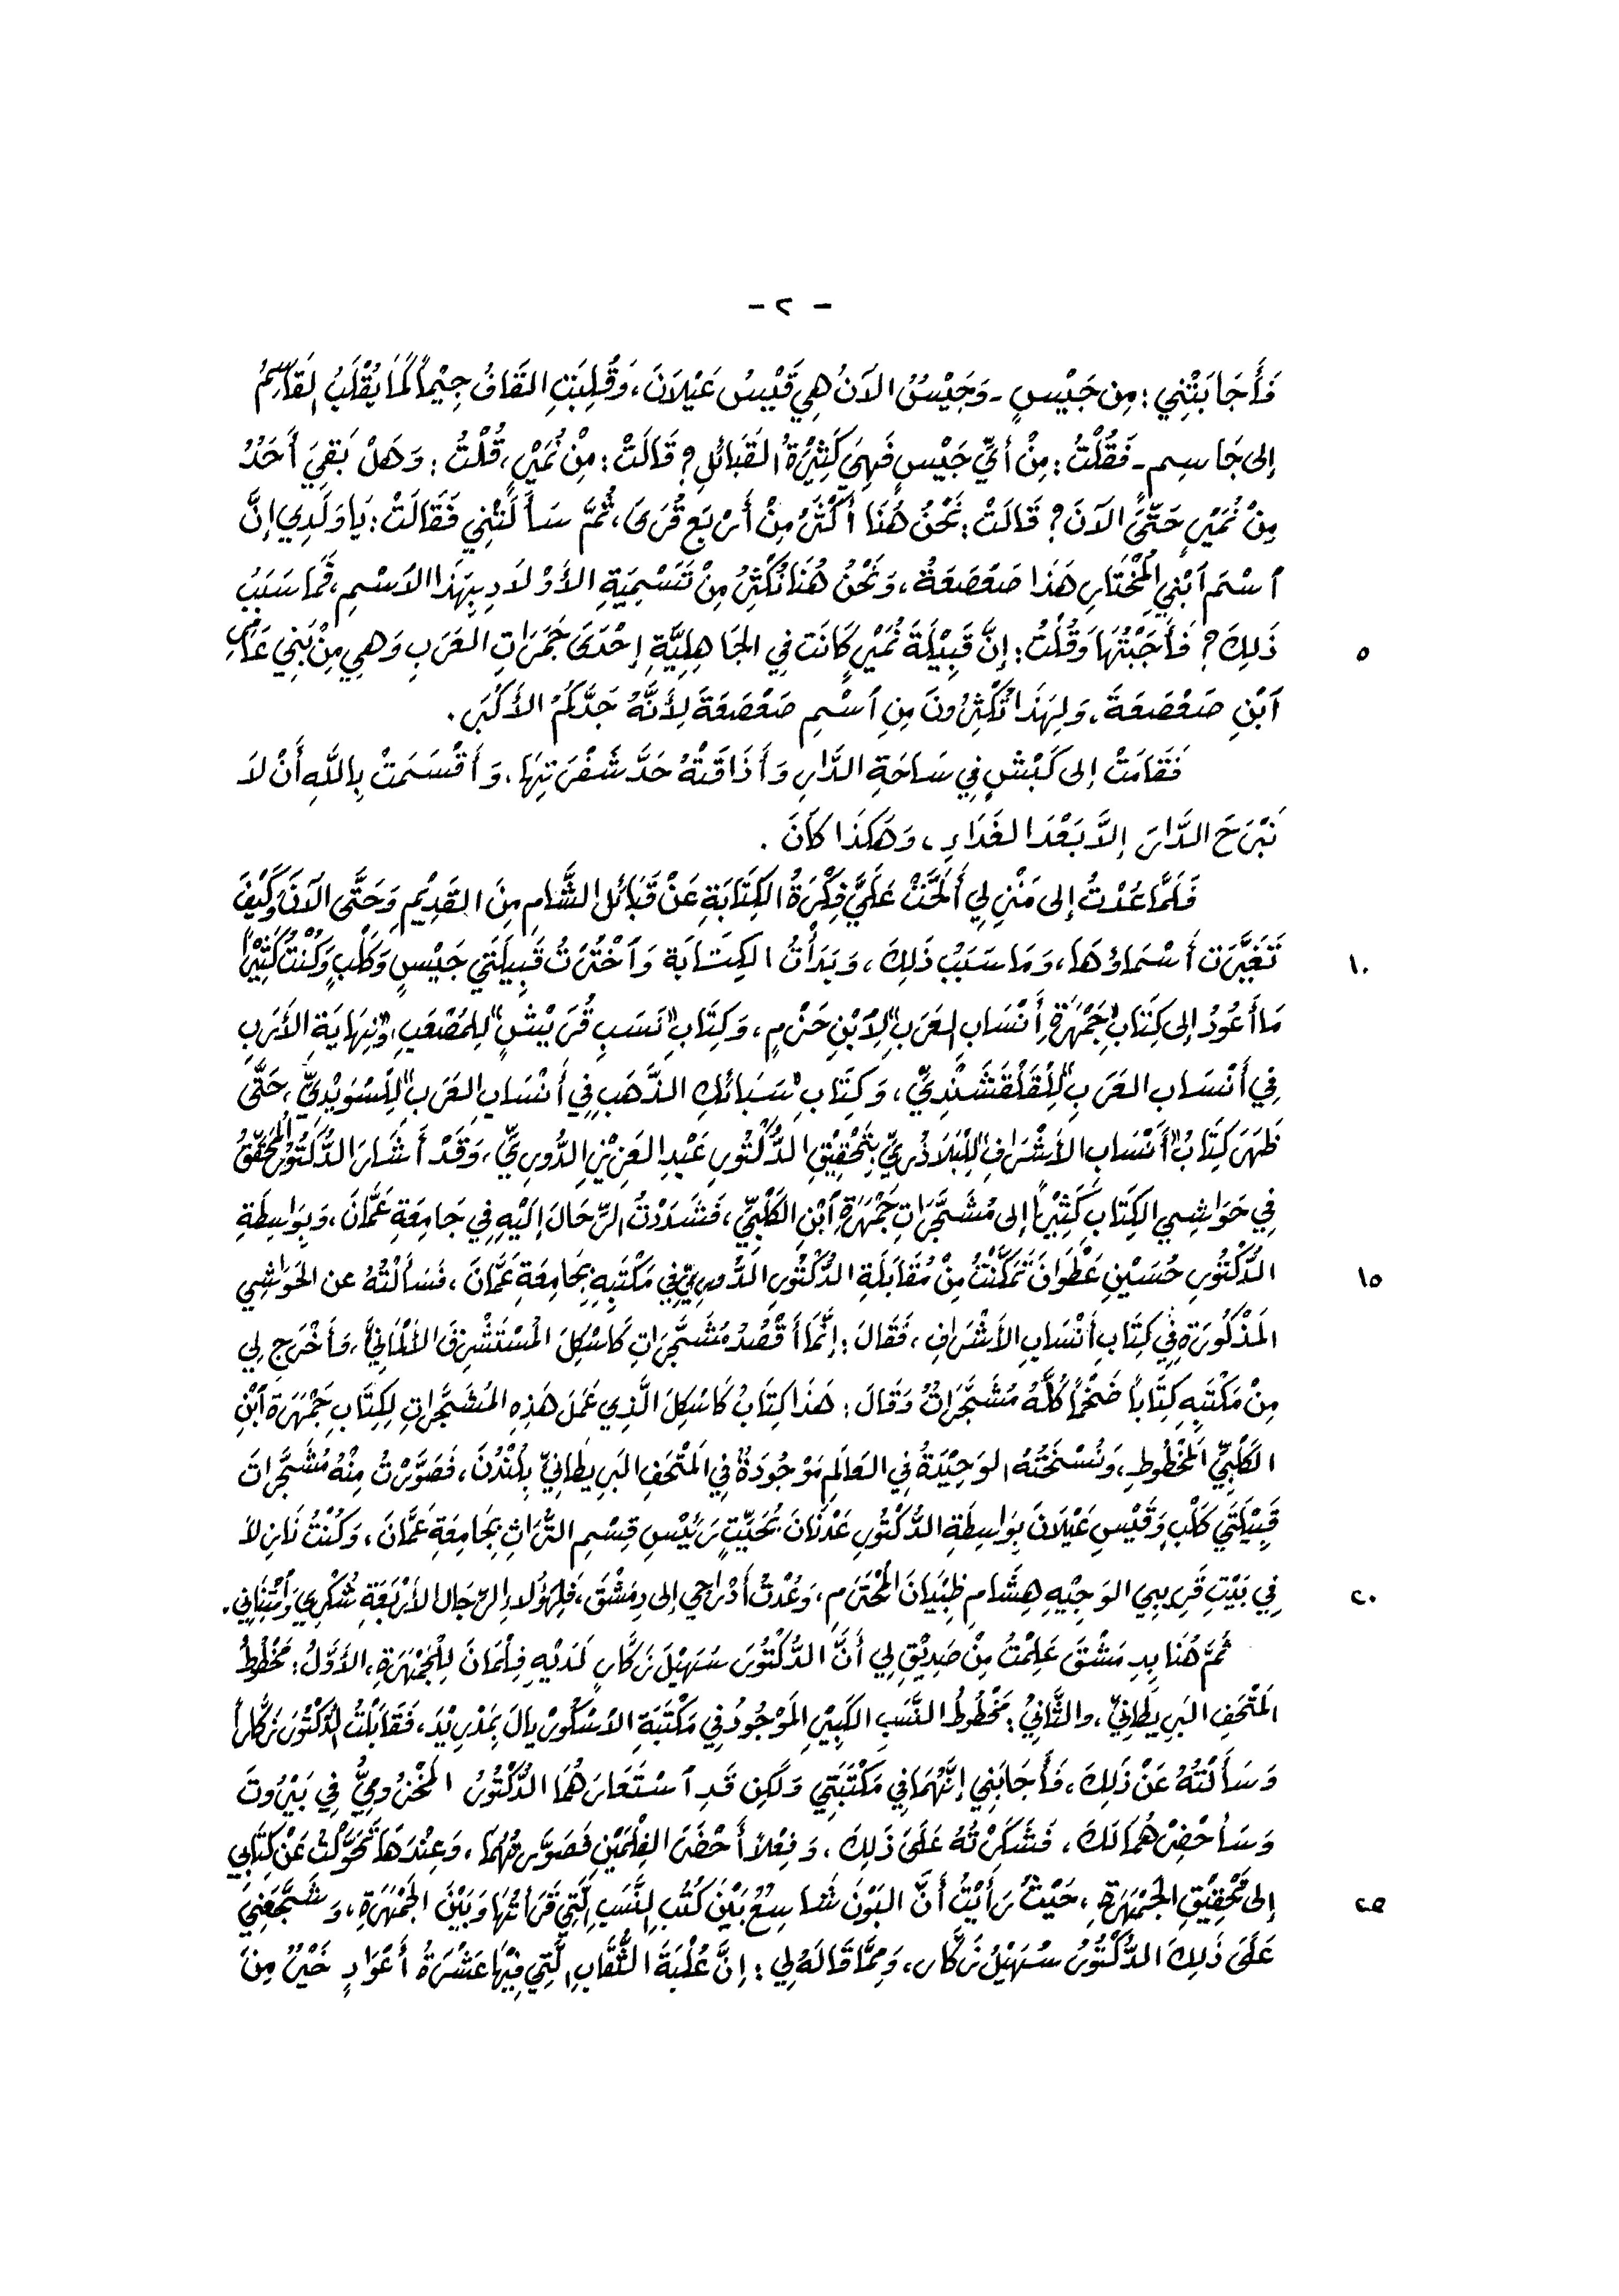 - ٢ -
فَأَجَابَتْنِي : مِن جَيْسٍ - وَجَيْسُ الآنُ هِيَ قَيْسُ عَيْلاَنَ، وَقُلِبَتِ القَافُ جِيْماً كَمَا يُقْلَبُ القَاسِمُ
إلى جَاسِم - فَقُلْتُ : مِنْ أَيِّ جَيْسٍ فَهِيَ كَثِيْرَةُ القَبَائِلِ ؟ قَالَتْ : مِنْ نُمَيْرٍ، قُلْتُ : وَهَلْ بَقِيَ أَحَدٌ
مِنْ نُمَيْرٍ حَتَّى الآنَ ؟ قَالَتْ : نَحْنُ هُنَا أَكْثَرُ مِنْ أَرْبَعِ قُرَىً، ثُمَّ سَأَلَتْنِي فَقَالَتْ : يَا وَلَدِي إنَّ
ٱسْمَ ٱبْنِي المُخْتَارِ هَذَا صَعْصَعَةُ، وَنَحْنُ هُنَا نُكْثِرُ مِنْ تَسْمِيَةِ الأَوْلاَدِ بِهَذَا الاَسْمِ، فَمَا سَبَبُ
ذَلِكَ ؟ فَأَجَبْتُهَا وَقُلْتُ : إنَّ قَبِيْلَةَ نُمَيْرٍ كَانَت فِي الجَاهِلِيَّةِ إحْدَىَ جَمَرَاتِ العَرَبِ وَهِي مِنْ بَنِي عَامِرِ ٥
ٱبْنِ صَعْصَعَةَ، وَلِهَذَا تُكْثِرُونَ مِنِ ٱسْمِ صَعْصَعَةَ لِأَنَّهُ جَدُّكُمُ الأَكْبَرَ .
فَقَامَتْ إلى كَبْشٍ فِي سَاحَةِ الدَّارِ وَأَذَاقَتْهُ حَدَّ شَفْرَتِهَا، وَأَقْسَمَتْ بِاللَّهِ أَنْ لاَ
نَبْرَحَ الدَّارَ إلاَّ بَعْدَ الغَدَاءِ، وَهَكَذَا كَانَ .
فَلَمَّا عُدْتُ إلى مَنْزِلِي أَلَحَّتْ عَلَيَّ فِكْرَةُ الكِتَابَةِ عَنْ قَبَائِلِ الشَّامِ مِنَ القَدِيْمِ وَحَتَّى الآنَ وَكَيْفَ
تَغَيَّرَت أَسْمَاؤهَا، وَمَا سَبَبُ ذَلِكَ، وَبَدَأْتُ الكِتَابَةَ وَٱخْتَرْتُ قَبِيلَتَي جَيْسٍ وَكَلْبٍ وَكُنْتُ كَثِيْراً ١٠
مَا أَعُودُ إلى كِتَابِ "جَمْهَرَةِ أَنْسَابِ العَرَبِ" لِاَبْنِ حَزْمٍ، وَكِتَابِ "نَسَبِ قُرَيْشٍ" لِلمُصْعَبِ، وَ"نِهَايَةِ الأَرَبِ
فِي أَنْسَابِ العَرَبِ" لِلْقَلْقَشَنْدِيِّ، وَكِتَابِ "سَبَائِكِ الذَّهَبِ فِي أَنْسَابِ العَرَبِ" لِلسُّوَيْدِيِّ، حَتَّى
ظَهَرَ كِتَابُ "أَنْسَابِ الأَشْرَافِ" لِلْبَلاَذُرِيِّ بِتَحْقِيْقِ الدُّكْتُورِ عَبْدِ العَزِيْزِ الدُّورِيِّ، وَقَدْ أَشَارَ الدُّكْتُورُ المُحَقِّقُ
فِي حَوَاشِي الكِتَابِ كَثِيْراً إلى مُشَجَّرَاتِ جَمْهَرَةِ ٱبْنِ الكَلْبِيِّ، فَشَدَدْتُ الرِّحَالَ إلَيْهِ فِي جَامِعَةِ عَمَّانَ، وَبِوَاسِطَةِ
الدُّكْتُورِ حُسَيْنِ عَطَوَانَ تَمَكَّنْتُ مِنْ مُقَابَلَةِ الدُّكْتُورِ الدُّورِيِّ فِي مَكْتَبِهِ بِجَامِعَةِ عَمَّانَ، فَسَأَلْتُهُ عن الحَوَاشِي ١٥
المَذْكُورَةِ فِي كِتَابِ أَنْسَابِ الأَشْرَافِ، فَقَالَ : إنَّمَا أَقْصُدُ مُشَجَّرَاتِ كَاسْكِلَ الْمُسْتَشْرِقِ الأَلْمَانِيِّ، وَأَخْرَجَ لِي
مِنْ مَكْتَبِهِ كِتَاباً ضَخْماً كُلُّهُ مُشَجَّرَاتٌ وَقَالَ : هَذَا كِتَابُ كَاسْكِلَ الَّذِي عَمَلَ هَذِهِ المُشَجَّرَاتِ لِكِتَابِ جَمْهَرَةِ ٱبْنِ
الكَلْبِيِّ المَخْطُوطِ، وَنُسْخَتُهُ الوَحِيْدَةُ فِي العَالَمِ مَوْجُودَةٌ فِي المَتْحَفِ البَرِيطَانِيِّ بِلُنْدُنَ، فَصَوَّرْتُ مِنْهُ مُشَجَّرَاتِ
قَبِيْلَتَي كَلْبٍ وَقَيْسِ عَيْلاَنَ بِوَاسِطَةِ الدُّكْتُورِ عَدْنَانَ بُخَيِّتٍ رَئِيْسِ قِسْمِ التُّرَاثِ بِجَامِعَةِ عَمَّانَ، وَكُنْتُ نَازِلاً
فِي بَيْتِ قَرِيبِي الوَجِيْهِ هِشَامِ ظِبْيَانَ المُحْتَرَمِ، وَعُدْتُ أَدْرَاجِي إلى دِمَشْقَ، فَلِهَؤُلاَءِ الرِّجَالِ الأَرْبَعَةِ شُكْرِي وَٱمْتِنَانِي . ٢٠
ثُمَّ هُنَا بِدِمَشْقَ عَلِمْتُ مِنْ صَدِيْقٍ لِي أَنَّ الدُّكْتُورَ سُهَيْلَ زَكَّارٍ لَدَيْهِ فِلْمَانَ لِلْجَمْهَرَةِ، الأَوَّلُ : مَخْطُوطُ
المَتْحَفِ البَرِيطَانِيِّ، والثَّانِيُ : مَخْطُوطُ النَّسَبِ الكَبِيْرِ المَوْجُودُ فِي مَكْتَبَةِ الاَسْكُورْيَالَ بِمَدْرِيْدَ، فَقَابَلْتُ الدُّكْتُورَ زَكَّاراً
وَسَأَلْتُهُ عَنْ ذَلِكَ، فَأَجَابَنِي إنَّهُمَا فِي مَكْتَبَتِي وَلَكِن قَدِ ٱسْتَعَارَهُمَا الدُّكْتُورُ المَخْزُومِيُّ فِي بَيْرُوتَ
وَسَأُحْضِرْهُمَا لَكَ، فَشَكَرْتُهُ عَلَىَ ذَلِكَ، وَفِعْلاً أَحْضَرَ الفِلْمَيْنِ فَصَوَّرتُهُمَا، وَعِنْدَهَا تَحَوَّلْتُ عَنْ كِتَابِي
إلى تَحْقِيْقِ الجَمْهَرَةِ، حَيْثُ رَأَيْتُ أَنَّ البَوْنَ شَاسِعٌ بَيْنَ كُتُبِ النَّسَبِ الَّتِي قَرَأتُهَا وَبَيْنَ الجَمْهَرَةِ، وَشَجَّعَنِيَ ٢٥
عَلَىَ ذَلِكَ الدُّكْتُورُ سُهَيْلُ زَكَّار، وَمِمَّا قَالَهُ لِي : إنَّ عُلْبَةَ الثُّقَابِ الَّتِي فِيْهَا عَشْرَةُ أَعْوَادٍ خَيْرٌ مِنَ